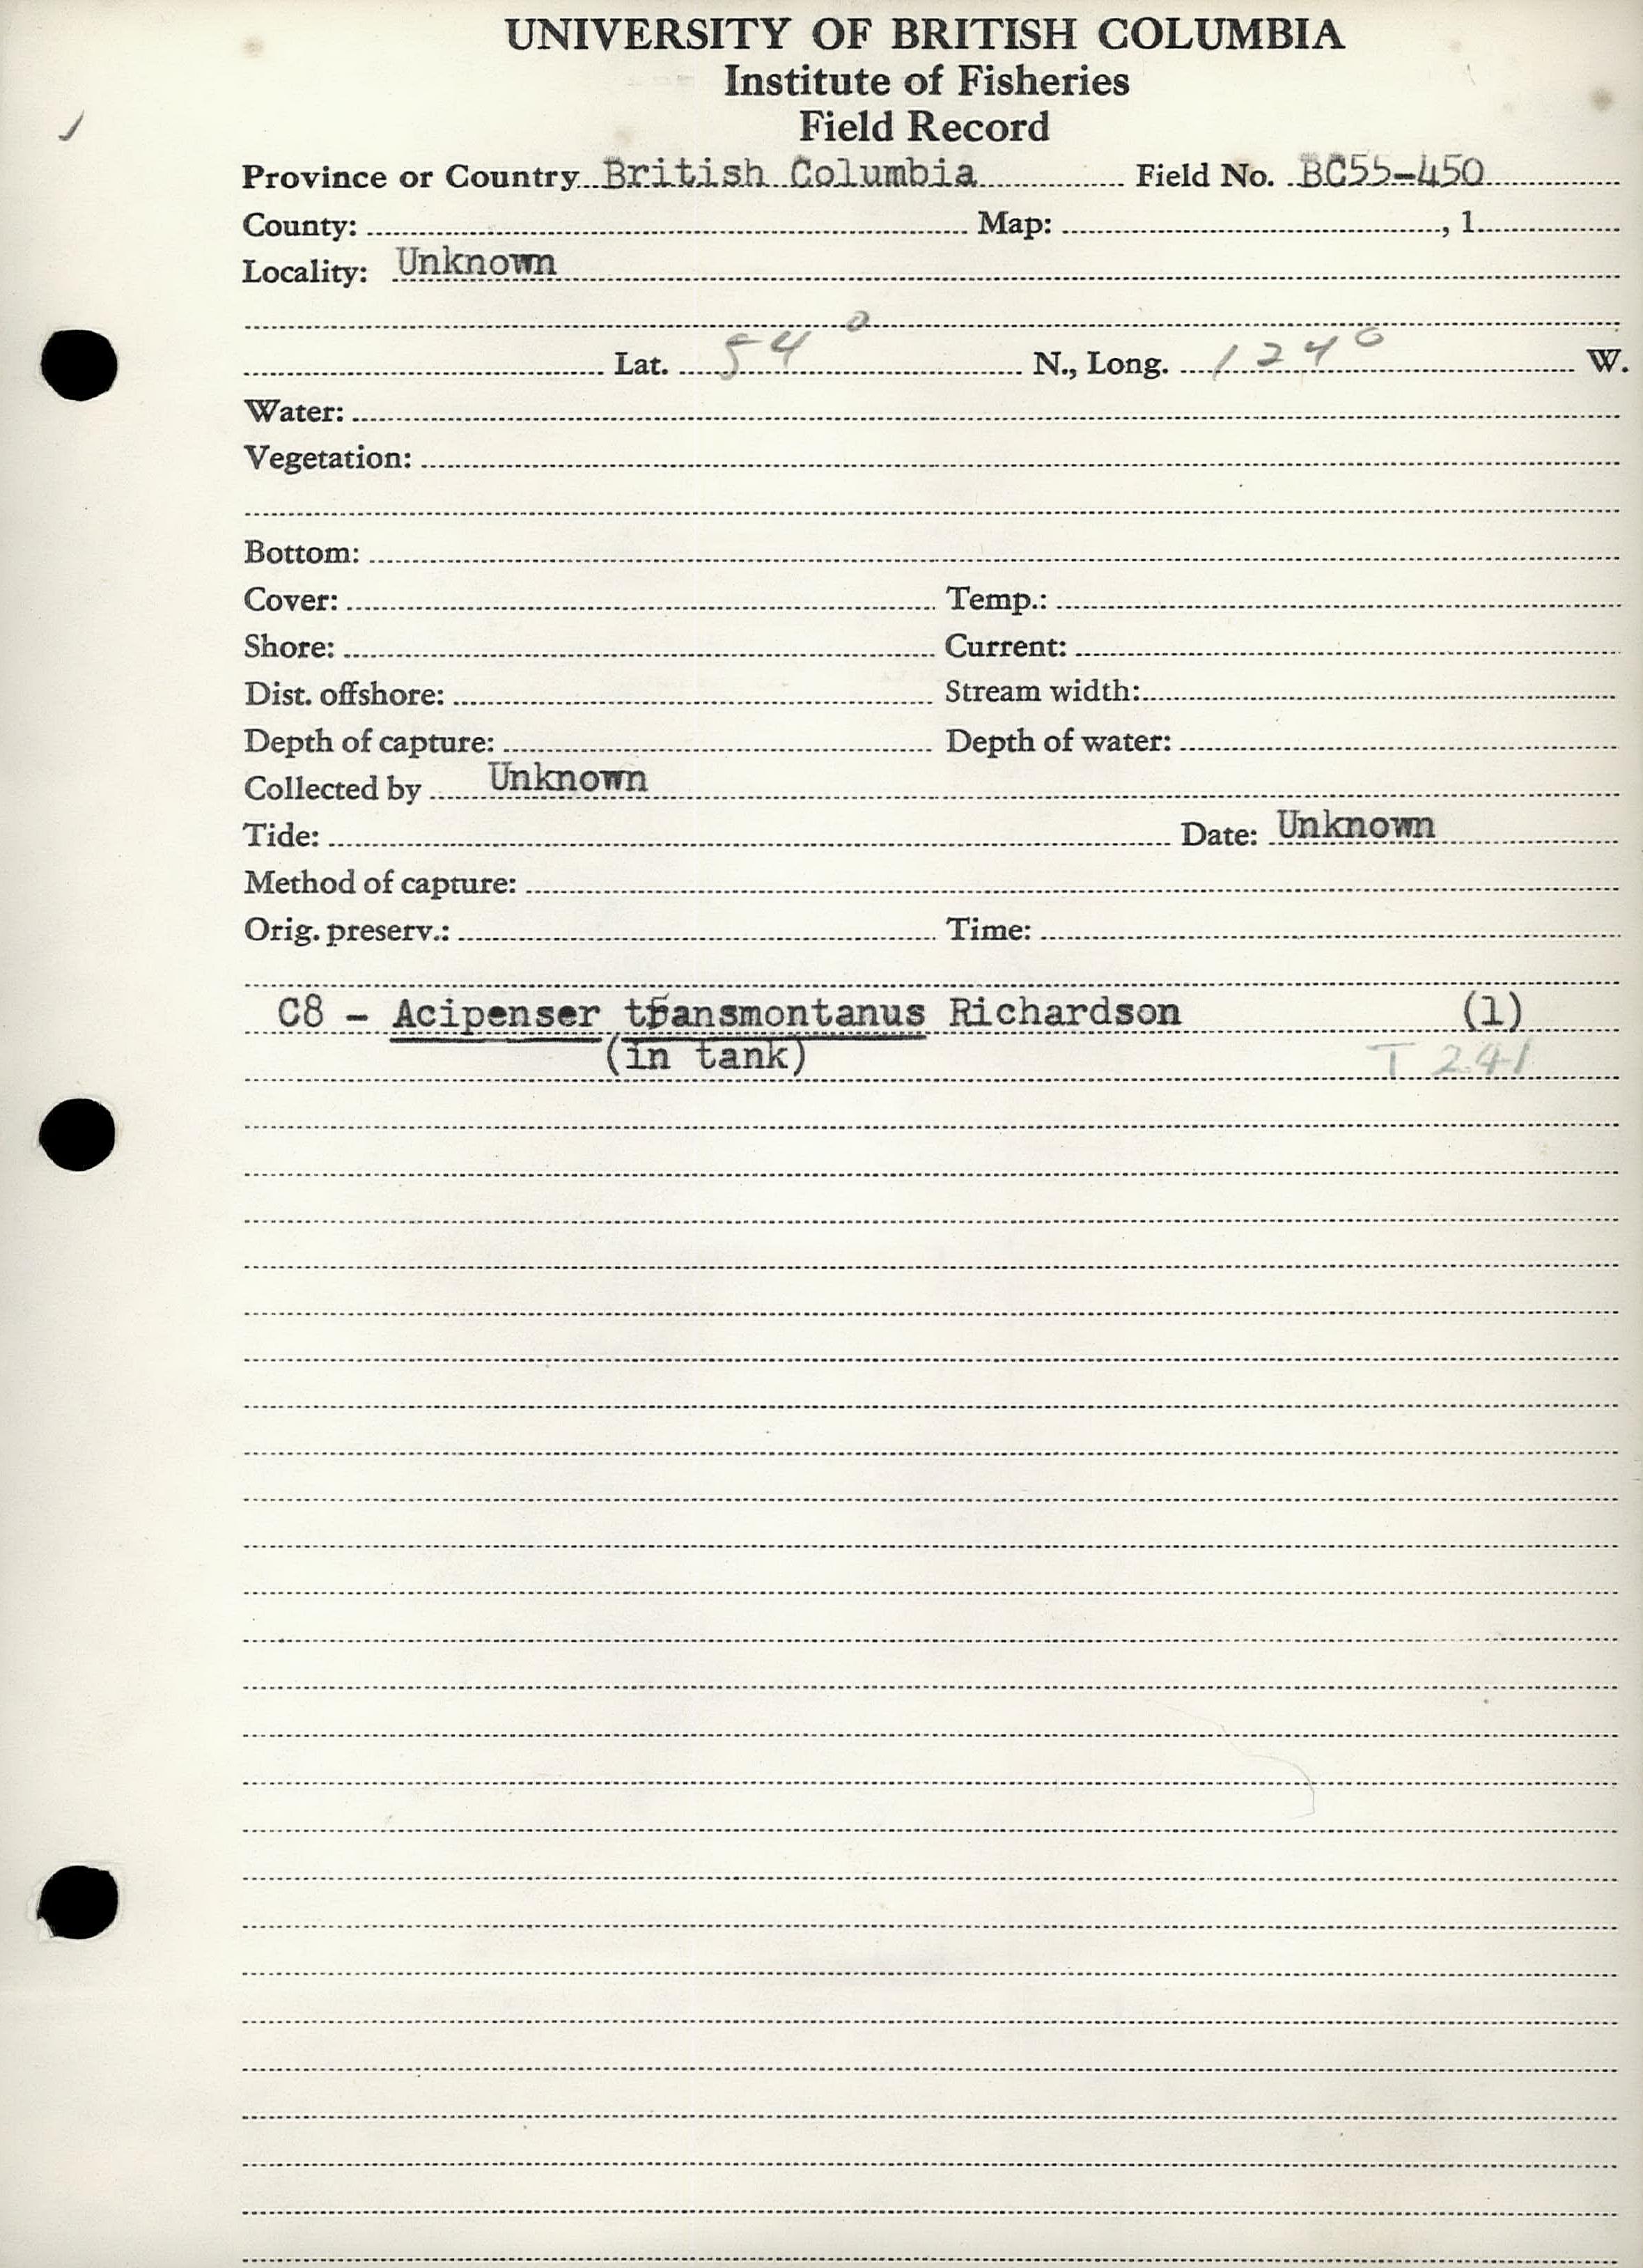 UNIVERSITY OF BRITISH COLUMBIA
Institute of Fisheries
Field Record
Province or Country British Columbia Field No. BC55-450
County: Map: , 1
Locality: Unknown
Lat. 54° N., Long. 124° W.
Water:
Vegetation:
Bottom:
Cover: Temp.:
Shore: Current:
Dist. offshore: Stream width:
Depth of capture: Depth of water:
Collected by Unknown
Tide: Date: Unknown
Method of capture:
Orig. preserv.: Time:
C8 - Acipenser transmontanus Richardson (1)
(in tank) T 241